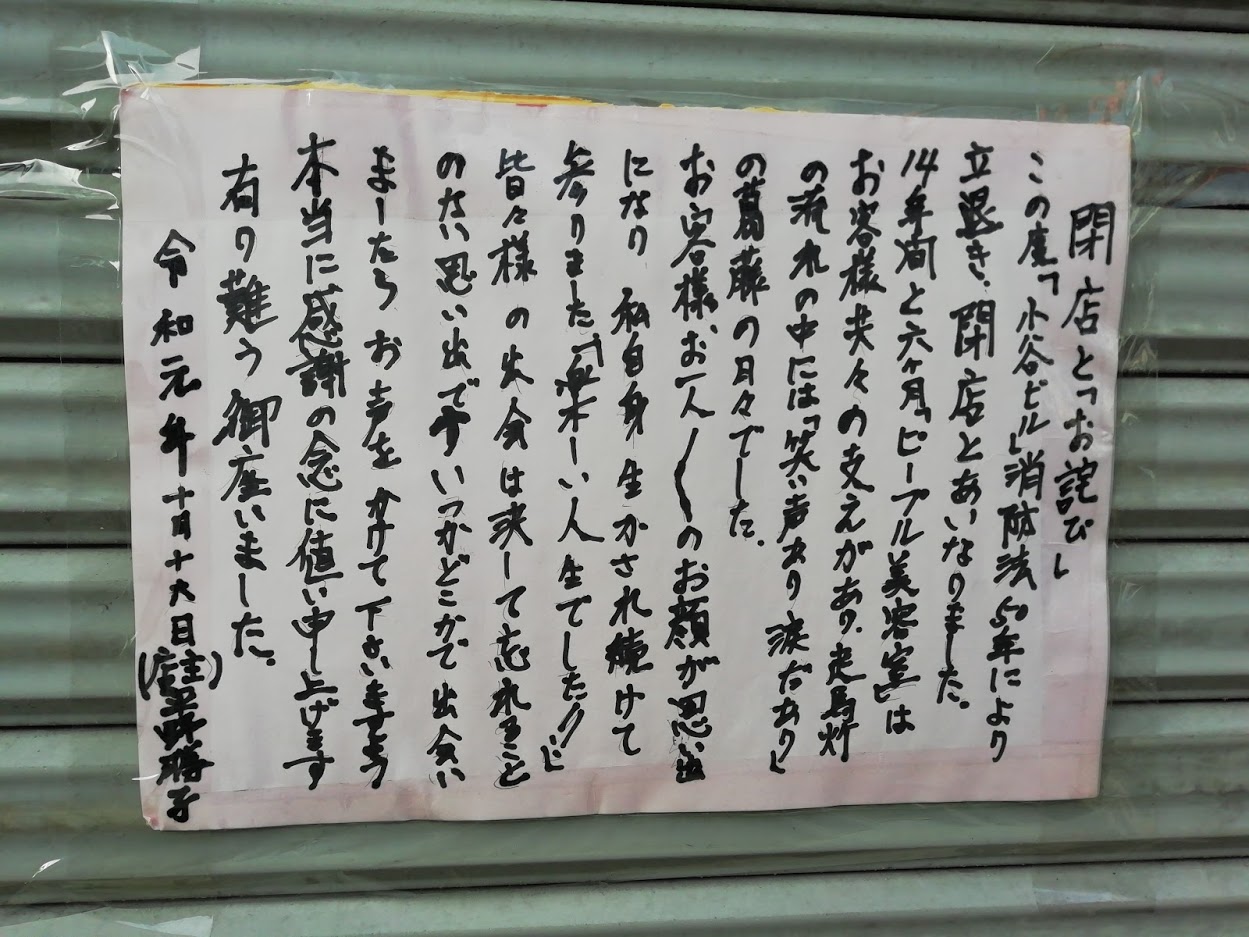 閉店と「お詫び」
この度「小谷ビル」消防法50年により
立退き、閉店とあいなりました。
14年間と六ヶ月「ピープル美容室」は
お客様共々の支えがあり、走馬灯
の流れの中には「笑い声あり涙だあり」
の葛藤の日々でした。
お客様、お一人〱のお顔が思い出
になり 私自身生かされ続けて
参りました「楽しい人生でした!!」
皆々様の出会は決して忘れること
のない思い出ですいつかどこかで出会い
ましたらお声をかけて下さいますよう
本当に感謝の念に値い申し上げます
有り難う御座いました。
令和元年十月十六日
(店主)
勝子